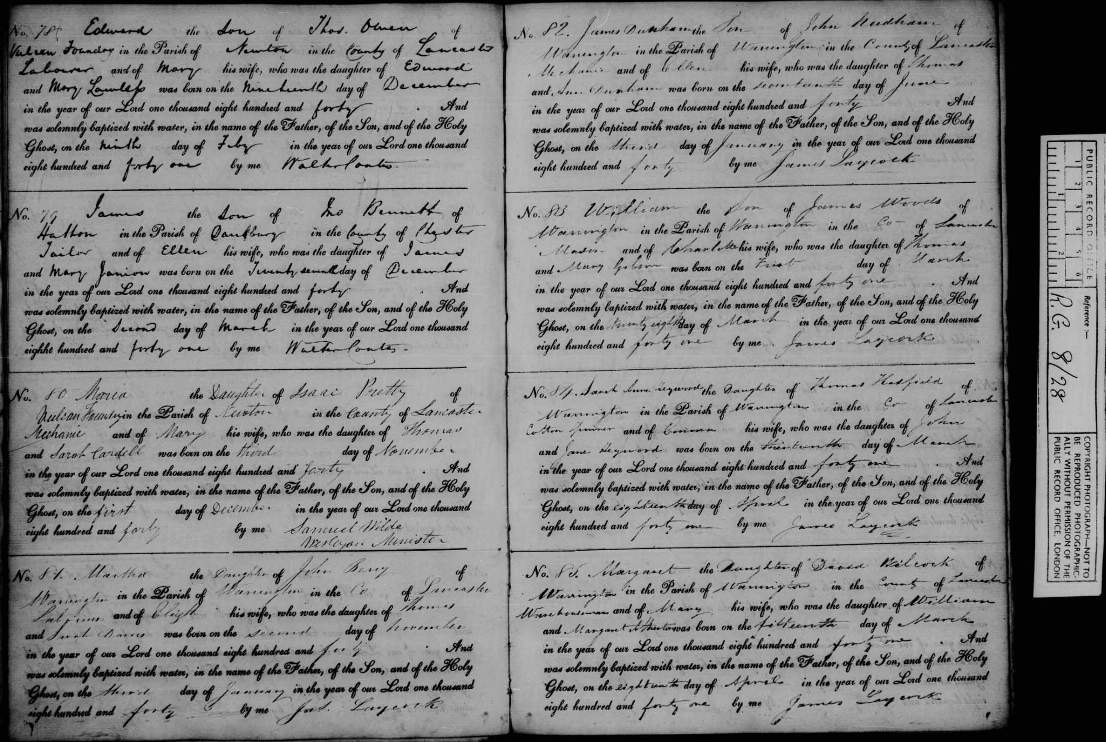 No. 78 Edward the Son of Thos. Owen of
Vulcan Foundry in the Parish of Newton in the County of Lancaster
Labourer and of Mary his wife, who was the daughter of Edward
and Mary was born on the Nineteenth day of December
in the year of our Lord one thousand eight hundred and forty . And
was solemnly baptized with water, in the name of the Father, of the Son, and of the Holy
Ghost, on the Ninth day of Feby in the year of our Lord one thousand
eight hundred and forty one by me Walter Coates.
No. 79 James the Son of Jno Bennett of
Hatton in the Parish of in the County of Chester
Tailor and of Ellen his wife, who was the daughter of James
and Mary Janion was born on the Twenty seventh day of December
in the year of our Lord one thousand eight hundred and forty . And
was solemnly baptized with water, in the name of the Father, of the Son, and of the Holy
Ghost, on the Second day of March in the year of our Lord one thousand
eighht hundred and forty one by me Walter Coates.
No. 80 Maria the Daughter of Isaac Pretty of
Vulcan Foundry in the Parish of Newton in the County of Lancaster
Mechanic and of Mary his wife, who was the daughter of Thomas
and Sarah was born on the third day of November
in the year of our Lord one thousand eight hundred and Forty . And
was solemnly baptized with water, in the name of the Father, of the Son, and of the Holy
Ghost, on the first day of December in the year of our Lord one thousand
eight hundred and forty by me Samuel Wilde
Wesleyan Minister
No. 81. Martha the Daughter of John Berry of
Warrington in the Parish of Warrington in the Co of Lancaster
and of his wife, who was the daughter of Thomas
and was born on the second day of November
in the year of our Lord one thousand eight hundred and forty . And
was solemnly baptized with water, in the name of the Father, of the Son, and of the Holy
Ghost, on the third day of January in the year of our Lord one thousand
eight hundred and forty by me Jas. Laycock
No. 82. James the Son of John Needham of
Warrington in the Parish of Warrington in the County of Lancaster
Mechanic and of Ellen his wife, who was the daughter of Thomas
and Ann was born on the day of June
in the year of our Lord one thousand eight hundred and forty . And
was solemnly baptized with water, in the name of the Father, of the Son, and of the Holy
Ghost, on the third day of January in the year of our Lord one thousand
eight hundred and forty by me James Laycock
No. 83 William the Son of James Woods of
Warrington in the Parish of Warrington in the Co of Lancaster
and of Charlotte his wife, who was the daughter of Thomas
and Mary was born on the First day of March
in the year of our Lord one thousand eight hundred and forty one . And
was solemnly baptized with water, in the name of the Father, of the Son, and of the Holy
Ghost, on the twenty eighth day of March in the year of our Lord one thousand
eight hundred and forty one by me James Laycock
No. 84. Anne the Daughter of Thomas Hatfield of
Warrington in the Parish of Warrington in the Co of Lancaster
Cotton Spinner and of Emma his wife, who was the daughter of John
and Jane Heywood was born on the thirteenth day of March
in the year of our Lord one thousand eight hundred and forty one . And
was solemnly baptized with water, in the name of the Father, of the Son, and of the Holy
Ghost, on the eighteenth day of April in the year of our Lord one thousand
eight hundred and forty one by me James Laycock
No. 85. Margaret the Daughter of David of
Warrington in the Parish of Warrington in the County of Lancaster
Warehouseman and of Mary his wife, who was the daughter of William
and Margaret was born on the fifteenth day of March
in the year of our Lord one thousand eight hundred and forty one . And
was solemnly baptized with water, in the name of the Father, of the Son, and of the Holy
Ghost, on the eighteenth day of April in the year of our Lord one thousand
eight hundred and forty one by me James Laycock
PUBLIC RECORD OFFICE
1 2 3 4 5 6
Reference:-
R.G. 8/28
COPYRIGHT PHOTOGRAPH—NOT TO
BE REPRODUCED PHOTOGRAPHIC-
ALLY WITHOUT PERMISSION OF THE
PUBLIC RECORD OFFICE, LONDON